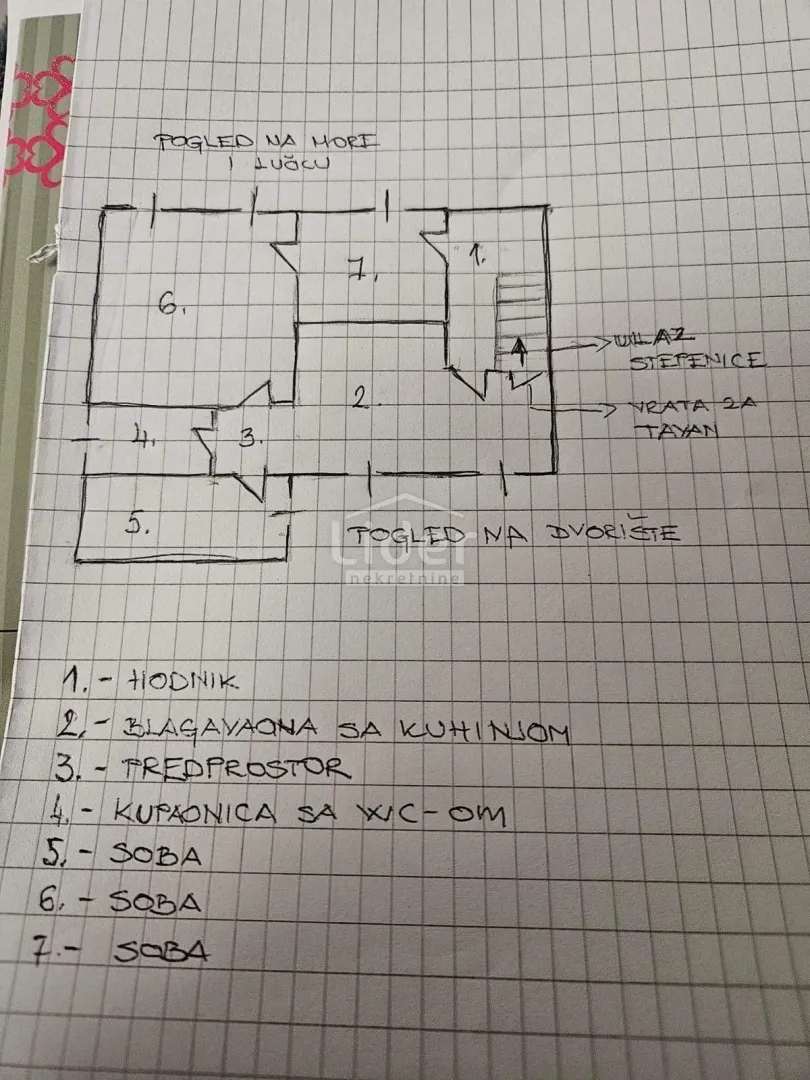 POGLED NA MORE
I LUČCU
6.
7.
1.
ULAZ
STEPENICE
2.
VRATA ZA
TAVAN
4.
3.
5.
POGLED NA DVORIŠTE
Lider
nekretnine
1. - HODNIK
2. - BLAGAVAONA SA KUHINJOM
3. - PREDPROSTOR
4. - KUPAONICA SA WC-OM
5. - SOBA
6. - SOBA
7. - SOBA